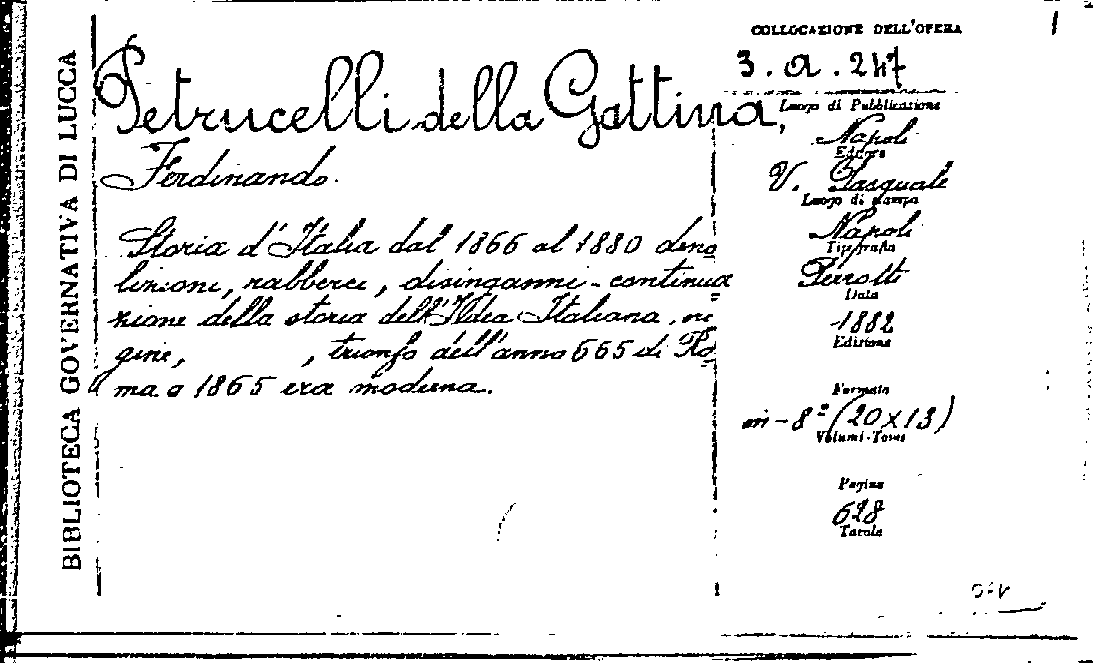 BIBLIOTECA GOVERNATIVA DI LUCCA
1
Petrucelli della Gattina,
Ferdinando.
Storia d'Italia dal 1866 al 1880 demo
lizioni, rabberci, disinganni - continua
zione della storia dell'Idea Italiana,
gine, , trionfo dell'anno 665 di Ro
ma a 1865 era moderna.
COLLOCAZIONE DELL'OPERA
3. a. 247
Luogo di Pubblicazione
Napoli
Editore
V. Pasquale
Luogo di stampa
Napoli
Tipografia
Perrotti
Data
1882
Edizione
Formato
in-8º (20x13)
Volumi-Tomi
Pagine
628
Tavole